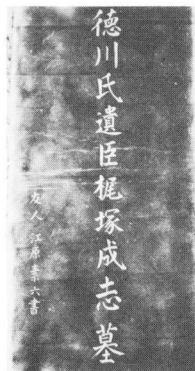 徳川氏遺臣梶塚成志墓
友人 江原素六書